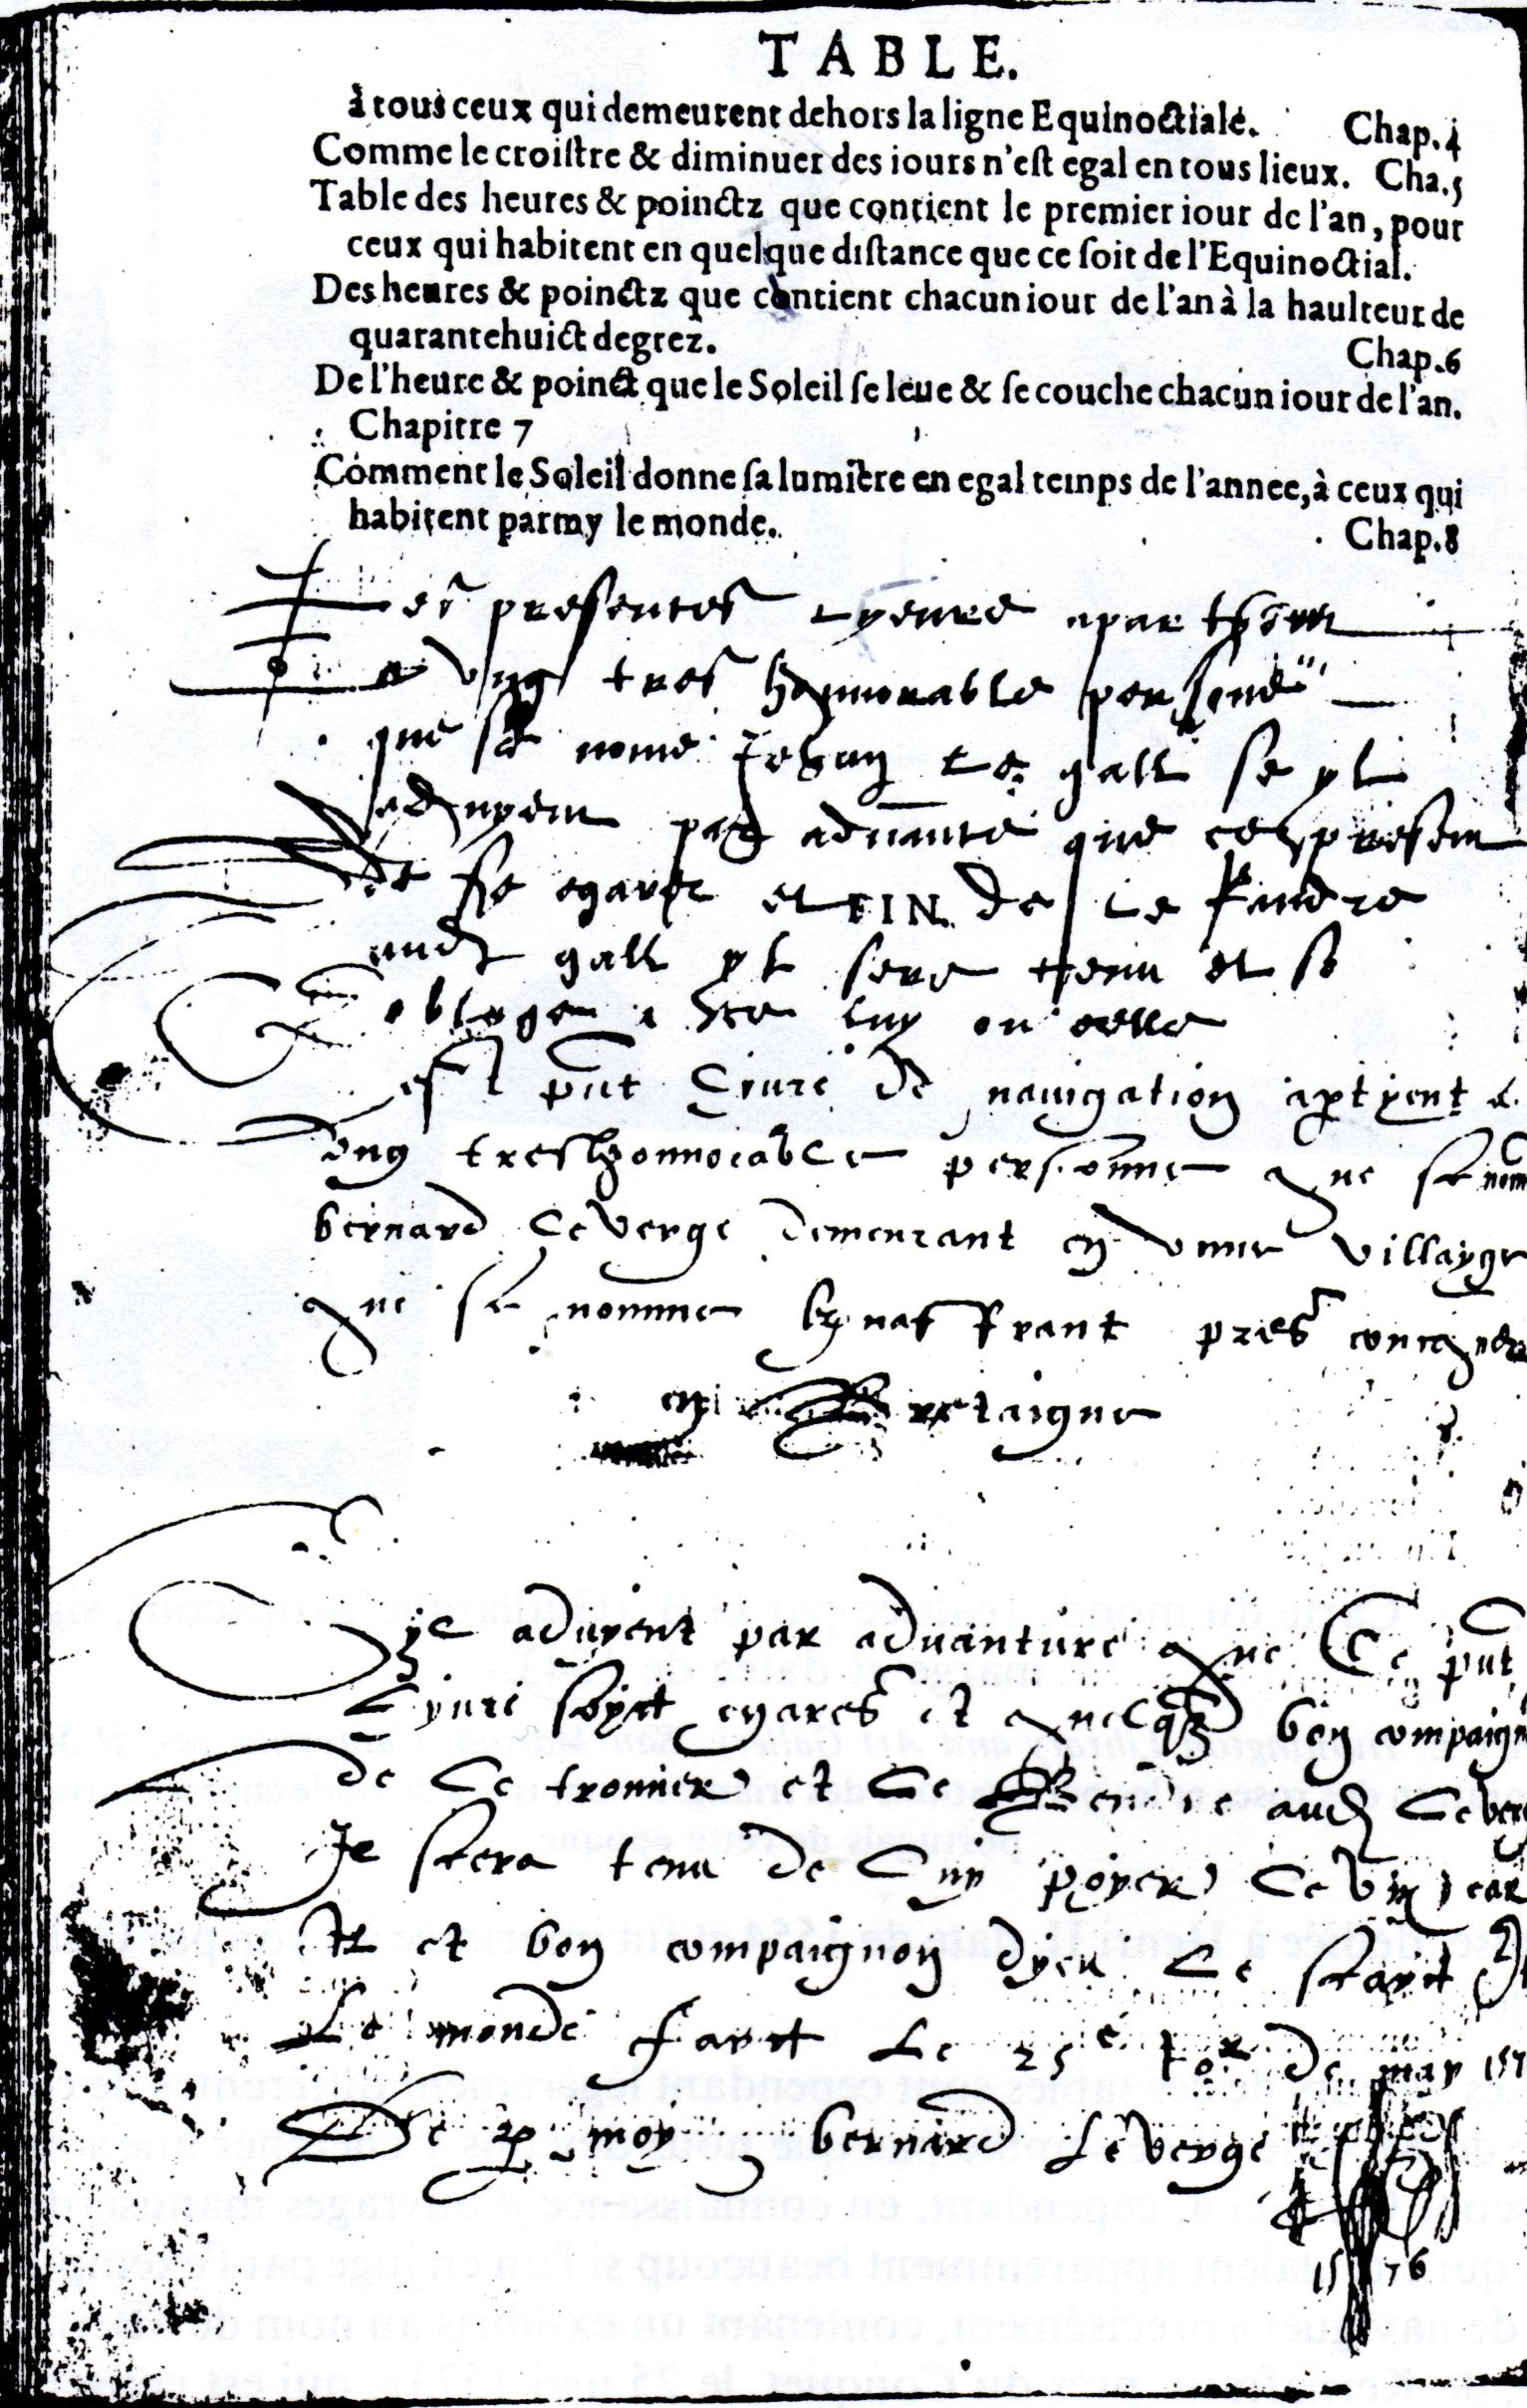 TABLE.
à tous ceux qui demeurent dehors la ligne Equinoctiale. Chap.4
Comme le croiſtre & diminuer des iours n'eſt egal en tous lieux. Cha.5
Table des heures & poinctz que contient le premier iour de l'an, pour
ceux qui habitent en quelque diſtance que ce ſoit de l'Equinoctial.
Des heures & poinctz que contient chacun iour de l'an à la haulteur de
quarantehuict degrez. Chap.6
De l'heure & poinct que le Soleil ſe leue & ſe couche chacun iour de l'an.
Chapitre 7
Comment le Soleil donne ſa lumiere en egal temps de l'annee, à ceux qui
habitent parmy le monde. Chap.8
presentes lyevre
a ung tres honnorable persone
que se nome Jehan le gall se yl
par advanture que
se egarer et FIN. de le randre
aud gall yl sera tenu et se
luy ou celle
est pnt livre de navigation
ung treshonnorable personne que se nom
bernard le verge demeurant en unne villayge
que se nomme pres
en bretaigne
Sy le advyent par advanture que le pnt
Lyvre soyt egares et quelq bon compaign
de le trouver et le Rendre aud le verg
Je sera tenu de luy poyer le vin car
Il et bon compaignon dyeu le sayt
Le monde fayt Le 25e Jor de may 157
De p moy bernard Le verge
1576